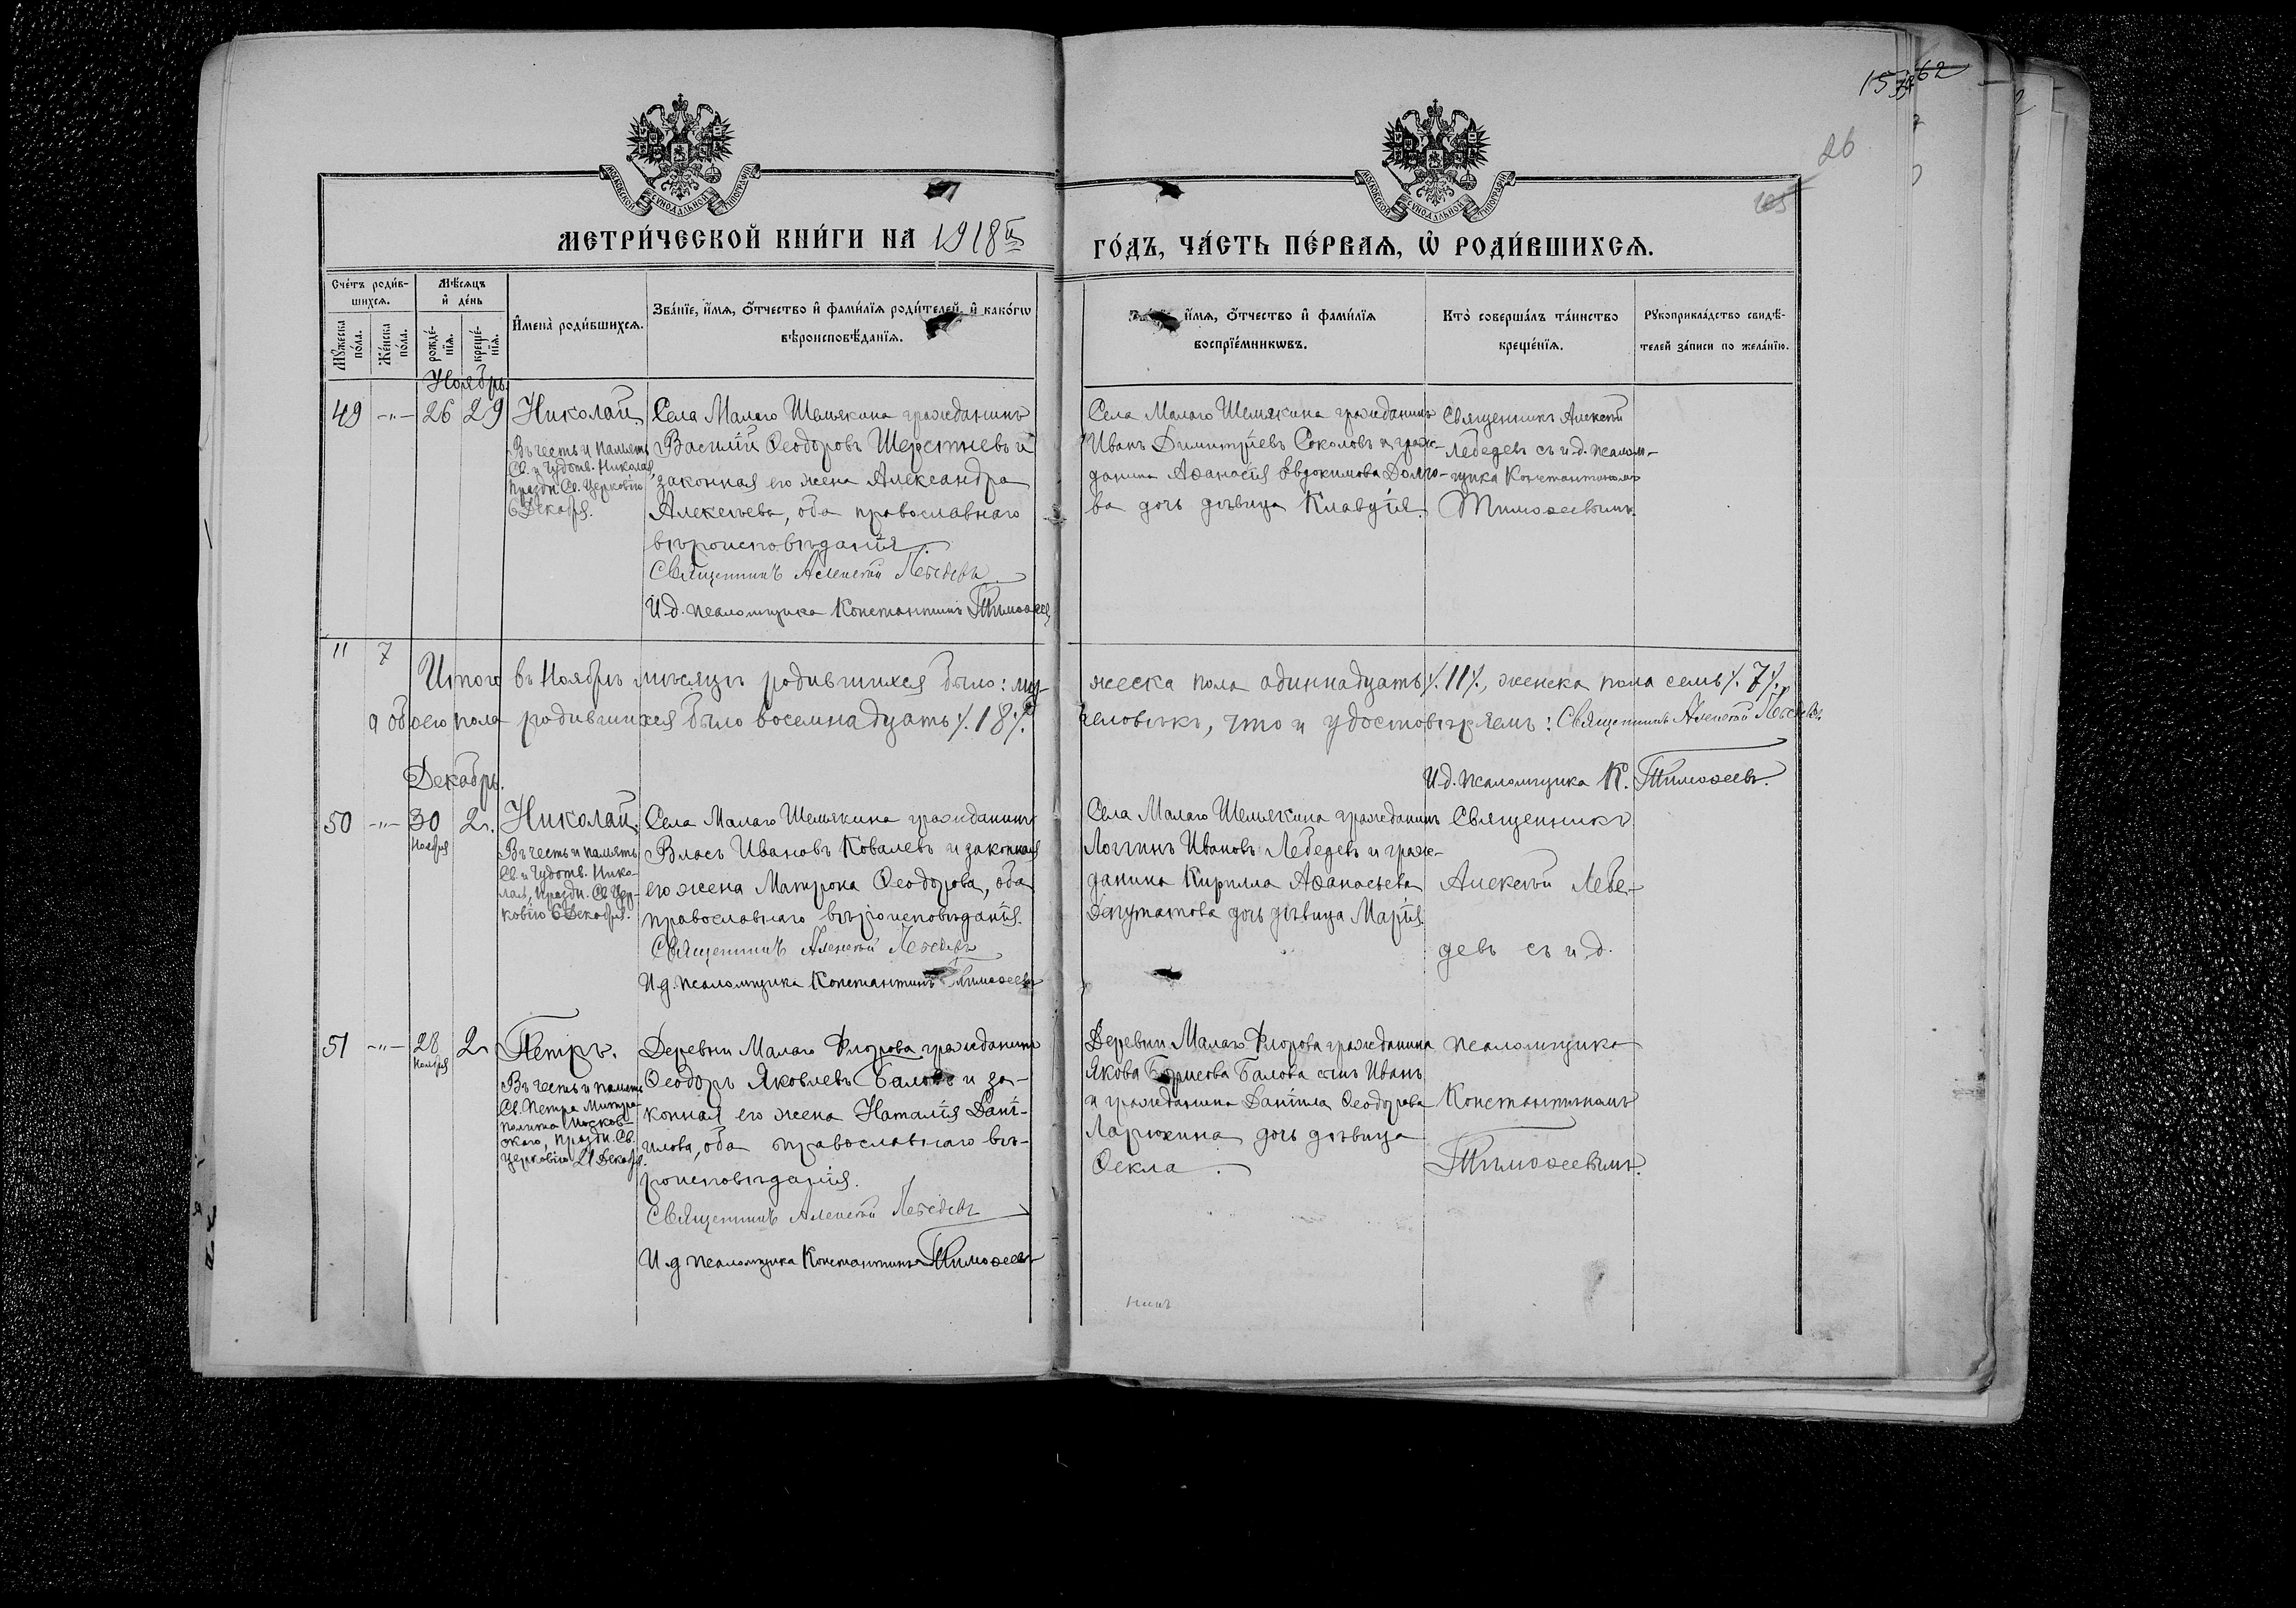 26
МЕТРИ́ЧЕСКОЙ КНИ́ГИ НА 1918й
ГО́ДЪ, ЧА́СТЬ ПЕ́РВАѦ, Ѡ҆ РОДИ́ВШИХСѦ.
Сче́тъ роди́в-
шихсѧ.
Мꙋ́жеска по́ла.
Же́нска по́ла.
Мѣ́сѧцъ
и҆ де́нь
рожде́-
нїѧ.
креще́-
нїѧ.
И҆мена̀ роди́вшихсѧ.
Зва́нїе, и҆́мѧ, ѻ҆́тчество и҆ фами́лїѧ роди́телей, и҆ како́гѡ
вѣроисповѣ́данїѧ.
и҆́мѧ, ѻ҆́тчество и҆ фами́лїѧ
воспрїе́мникѡвъ.
Кто̀ соверша́лъ та́инство
креще́нїѧ.
Рꙋкоприкла́дство свидѣ́-
телей за́писи по жела́нїю.
Ноябрь
49 -"- 26 29
Николай
Въ честь и память
Св. и Чудотв. Николая,
праздн. Св. Церковію
6 Декабря.
Села Малаго Шемякина гражданинъ
Василій Ѳеодоровъ Шерстневъ и
законная его жена Александра
Алексѣева, оба православнаго
вѣроисповѣданія.
Священникъ Алексѣй Лебедевъ
И.д. псаломщика Константинъ Тимоѳеев
Села Малаго Шемякина гражданинъ
Иванъ Димитріевъ Соколовъ и граж-
данина Аѳанасія Евдокимова Долго-
ва дочь дѣвица Клавдія.
Священникъ Алексѣй
Лебедевъ съ и.д. псалом-
щика Константиномъ
Тимоѳеевымъ.
11 7
Итого въ Ноябрѣ мѣсяцѣ родившихся было: му-
жеска пола одиннадцать ./.11./., женска пола семь ./.7./.,
а обоего пола родившихся было восемнадцать ./.18./.
человѣкъ, что и удостовѣряемъ: Священникъ Алексѣй Лебедевъ.
И.д. псаломщика К. Тимоѳеевъ.
Декабрь.
50 -"- 30 2.
Ноября
Николай.
Въ честь и память
Св. и Чудотв. Нико-
лая, праздн. Св. Цер-
ковію 6 Декабря.
Села Малаго Шемякина гражданинъ
Власъ Ивановъ Ковалевъ и законная
его жена Матрона Ѳеодорова, оба
православнаго вѣроисповѣданія.
Священникъ Алексѣй Лебедевъ
И.д. псаломщика Константинъ Тимоѳеевъ
Села Малаго Шемякина гражданинъ
Логгинъ Ивановъ Лебедевъ и граж-
данина Кирилла Аѳанасьева
Депутатова дочь дѣвица Марія.
Священникъ
Алексѣй Лебе-
девъ съ и.д.
51 -"- 28 2
Ноября
Петръ.
Въ честь и память
Св. Петра Митро-
полита Москов-
скаго, праздн. Св.
Церковію 21 Декабря.
Деревни Малаго Флорова гражданинъ
Ѳеодоръ Яковлевъ Баловъ и за-
конная его жена Наталія Дані-
илова, оба православнаго вѣ-
роисповѣданія.
Священникъ Алексѣй Лебедевъ
И.д псаломщика Константинъ Тимоѳеевъ
Деревни Малаго Флорова гражданина
Якова Борисова Балова сынъ Иванъ
и гражданина Даніила Ѳеодорова
Ларюхина дочь дѣвица
Ѳекла.
псаломщика
Константиномъ
Тимоѳеевымъ.